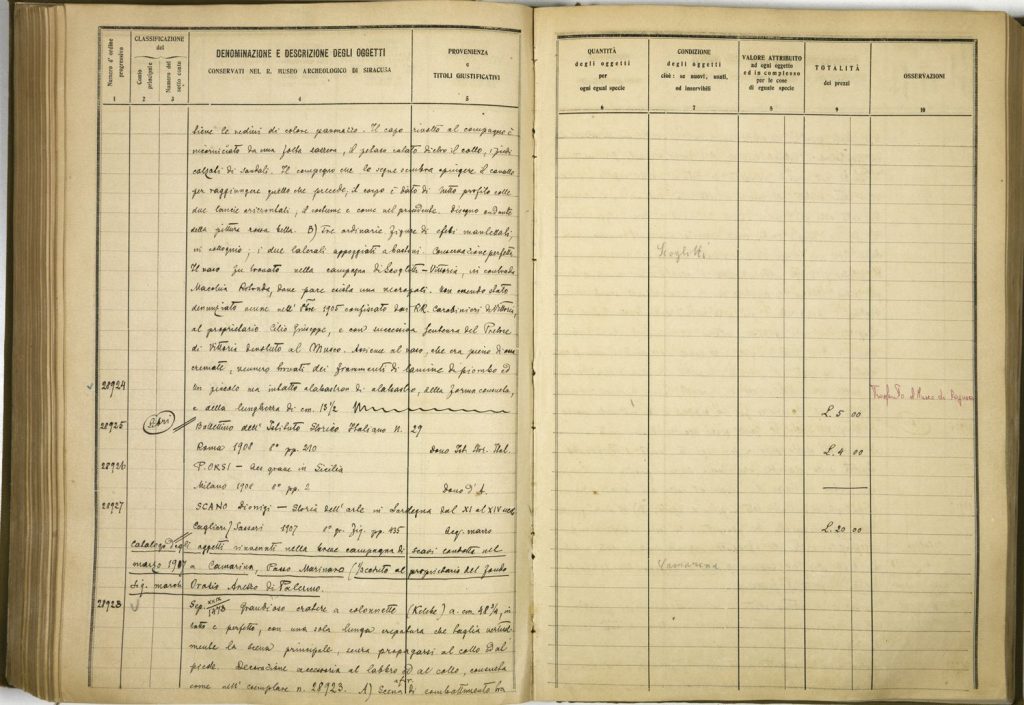 Numero d'ordine progressivo
CLASSIFICAZIONE del
Conto principale
Numero del sotto conto
DENOMINAZIONE E DESCRIZIONE DEGLI OGGETTI
CONSERVATI NEL R. MUSEO ARCHEOLOGICO DI SIRACUSA
PROVENIENZA
e
TITOLI GIUSTIFICATIVI
1 2 3 4 5
tiene le redini di colore paonazzo. Il capo rivolto al compagno è
incorniciato da una folta , il petaso calato dietro il collo, i piedi
calzati di sandali. Il compagno che lo segue sembra spingere il cavallo
per raggiungere quello che precede; il corpo è dato di tutto profilo colle
due lancie orizontali, il costume è come nel precedente. Disegno andante
della pittura rossa bella. B) Tre ordinarie figure di efebi mantellati
in colloquio; i due laterali appoggiati a bastoni. Conservazione perfetta
Il vaso fu trovato nella campagna di Scoglitti-Vittoria, in contrada
Rotonda, dove pare esista una necropoli. Non essendo stato
denunziato venne nell' 8bre 1905 confiscato dai RR. Carabinieri di Vittoria,
al proprietario Giuseppe, e con successiva sentenza del Pretore
di Vittoria devoluto al Museo. Assieme al vaso, che era pieno di ossa
cremate, vennero trovati dei frammenti di lamine di piombo ed
28924 un piccolo ma intatto alabastron di alabastro, della forma consueta,
e della lunghezza di cm. 13 1/2
28925 Libri Bollettino dell' Istituto Storico Italiano n. 29
Roma 1908 8° pp. 210 Dono Ist. Stor. Ital.
28926 P. ORSI - Aes grave in Sicilia
Milano 1908 8° pp. 2 Dono d'A.
28927 SCANO Dionigi - Storia dell'arte in Sardegna dal XI al XIV sec.
Cagliari, Sassari 1907 8° gr. fig. pp. 435 Acq. marzo
Catalogo degli oggetti rinvenuti nella breve campagna di scavi condotta nel
marzo 1907 a Camarina, Passo Marinaro ( al proprietario del fondo
Sig. march. Orazio di Palermo.
28928 Sep. XXIX/1473 Grandioso cratere a colonnette (Kelebe) a. cm. 48 3/4, in
rotto e perfetto, con una sola lunga crepatura che taglia vertical-
mente la scena principale, senza propagarsi al collo ed al
piede. Decorazione accessoria al labbro ed al collo, consueta
come nell'esemplare n. 28923. A) Scena di combattimento tra
QUANTITÀ
degli oggetti
per
ogni egual specie
CONDIZIONE
degli oggetti
cioè: se nuovi, usati,
od inservibili
VALORE ATTRIBUITO
ad ogni oggetto
ed in complesso
per le cose
di eguale specie
TOTALITÀ
dei prezzi
OSSERVAZIONI
6 7 8 9 10
Scoglitti
Trasferito al Museo di Ragusa
L. 5 00
L. 4 00
L. 20 00
Camarina